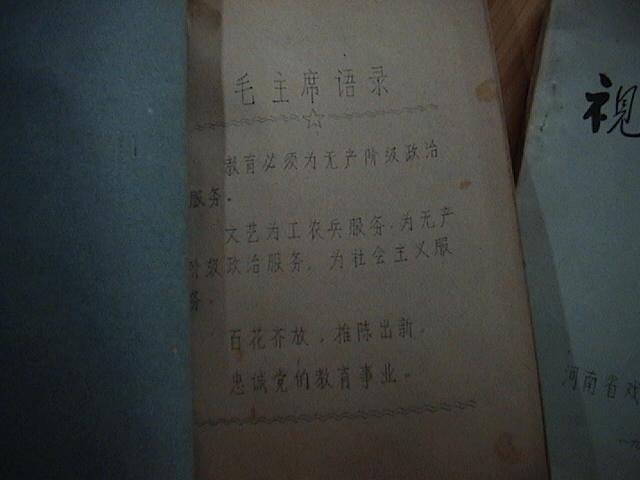 毛主席语录
教育必须为无产阶级政治
服务。
文艺为工农兵服务,为无产
阶级政治服务,为社会主义服
务。
百花齐放,推陈出新。
忠诚党的教育事业。
视
河南省戏